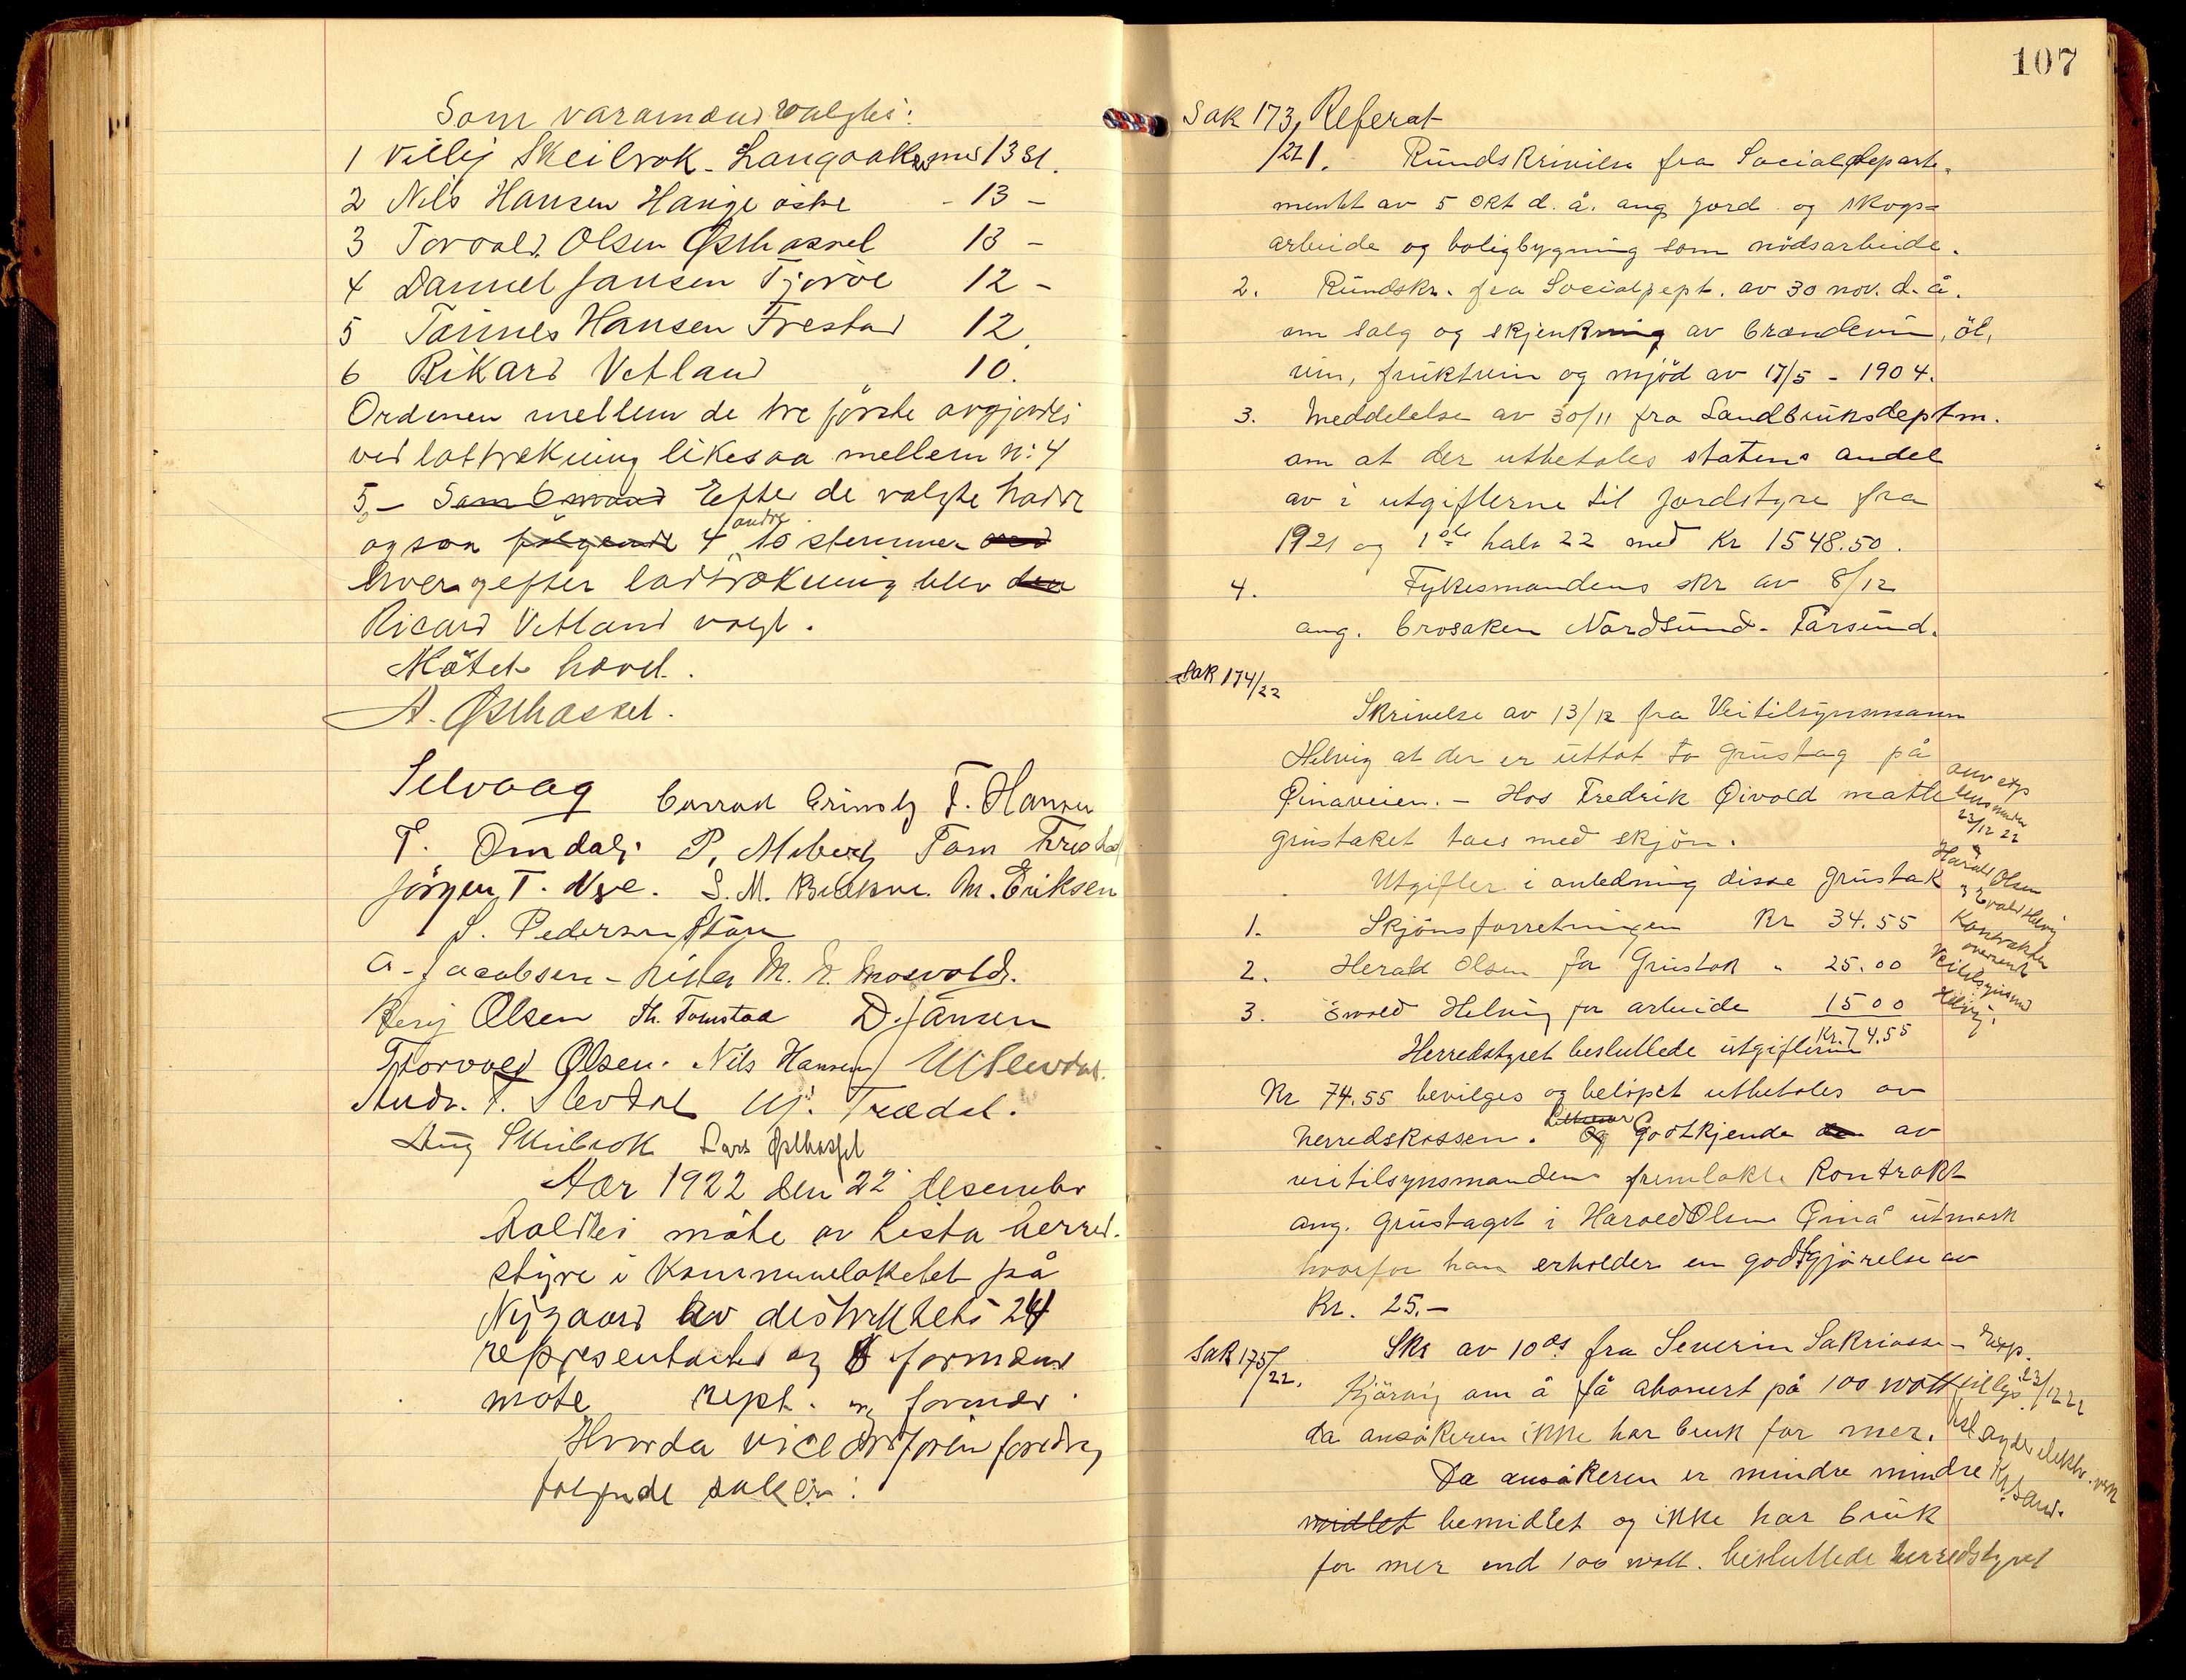 Som varamænd valgtes:
1 Villy Skeilrok - Langaaker med 13 st.
2 Nils Hansen Hauge østre - 13 -
3 Torvald Olsen Østhassel 13 -
4 Daniel Jansen Tjørve 12 -
5 Tønnes Hansen Frestad 12
6 Rikard Vetland 10.
Ordenen mellem de tre første avgjordes
ved lottrækning likesaa mellem n: 4
5 - Efter de valgte hadde
ogsaa følgende 4 andre 10 stemmer
hver og efter lodtrækning blev den
Ricard Vetland valgt.
Møtet hævet.
A. Østhassel.
Selvaag Conrad Grimsby T. Hansen
T. Omdal P. Meberg Tom Frestad
Jørgen T. Nye. S. M. M. Eriksen
S. Pedersen Støru
A. Jacobsen - M. Mosvold.
Berij Olsen Th. Tomstad D. Jansen
Torvald Olsen. Nils Hansen
Andr. T. Slevdal Trædal.
Aug Skeibrok Lars Østhassel
Aar 1922 den 22 desember
holdtes møte av Lista herred-
styre i Kommunelokalet på
Nygaard av distriktets 24
representanter og 8 formænd
møte rept. og formænd.
Hvorda viceordføren foredrog
følgende saker:
107
Sak 173, Referat
/22 1. Rundskrivelse fra Socialdeparte-
mentet av 5 okt d. å. ang jord og skogs-
arbeide og boligbygning som nødsarbeide.
2. Rundskr. fra Socialdept. av 30 nov. d. å.
om salg og skjenkning av brændevin, öl,
vin, fruktvin og mjød av 17/5 - 1904.
3. Meddelelse av 30/11 fra Landbruksdeptm.
om at der utbetales statens andel
av i utgifterne til Jordstyre fra
1921 og 1ste halv 22 med Kr 1548.50.
4. Fylkesmandens skr av 8/12
ang. brosaken Nordsund - Farsund.
Sak 174/22
Skrivelse av 13/12 fra Veitilsynsmann
Helvig at der er uttat to grustag på
Øinaveien. - Hos Fredrik Øivold matte
grustaket taes med skjøn.
Utgifter i anledning disse grustak
1. Skjønsforretningen Kr 34.55
2. Herald Olsen for Grustak " 25.00
3. Evald Helvig for arbeide 15 00
Kr. 74.55
23/12 22
Harald Olsen
Evald Helvig
Kontrakten
oversendt
Veitilsynsmd
Helvig.
Herredstyret besluttede utgifterne
Kr 74.55 bevilges og beløpet utbetales av
herredskassen. Og godkjende den av
veitilsynsmanden fremlakte Kontrakt
ang. grustaget i Harald Olsen Øinå utmark
hvorfor han erholder en godtgjørelse av
Kr. 25.-
Sak 175/22. Skr av 10 ds fra Severin Sakriassen
Kjørvig om å få abonert på 100 watt tillys
da ansøkeren ikke har bruk for mer.
Exp. 23/12 22
Da ansøkeren er mindre mindre
midlet bemidlet og ikke har bruk
for mer end 100 watt. besluttede herredstyret